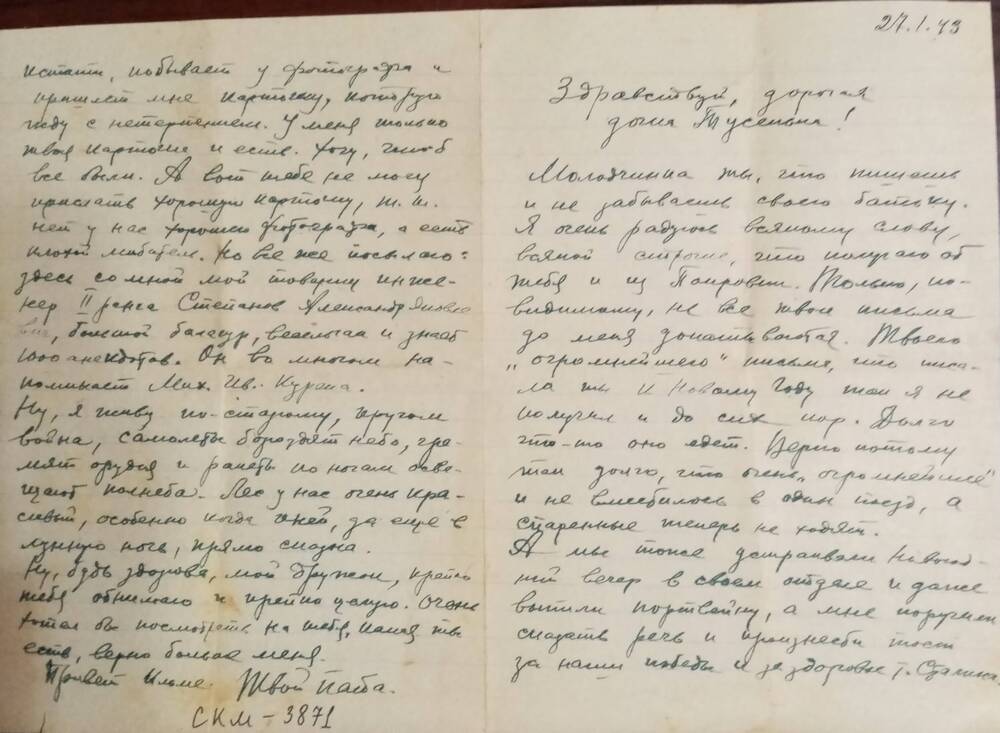 27.1.43
Здравствуй, дорогая
дочка Тусенька!
Молодчинка ты, что пишешь
и не забываешь своего батьку.
Я очень радуюсь всякому слову,
всякой строчке, что получаю об
тебя и из Покровки. Только, по-
видимому, не все твои письма
до меня докатываются. Твоего
„огромнейшего" письма, что писа-
ла ты к Новому Году так я не
получил и до сих пор. Долго
что-то оно едет. Верно потому
так долго, что очень „огромнейшее"
и не вместилось в один поезд, а
спаренные теперь не ходят.
А мы тоже устраивали Новогод-
ний вечер в своем отделе и даже
выпили портвейну, а мне поручили
сказать речь и произнести тост
за наши победы и за здоровье т. Сталина.
кстати, побывает у фотографа и
пришлет мне карточку, которую
жду с нетерпением. У меня только
твоя карточка и есть. Хочу, чтоб
все были. А вот тебе не могу
прислать хорошую карточку, т.к.
нет у нас хороших фотографа, а есть
плохой любитель. Но все же посылаю:
здесь со мной мой товарищ инже-
нер II ранга Степанов Александр Яковле
вич, большой балагур, весельчак и знает
1000 анекдотов. Он во многом на-
поминает Мих. Ив. Курана.
Ну, я живу по-старому, кругом
война, самолеты бороздят небо, гре-
мят орудия и ракеты по ночам осве-
щают полнеба. Лес у нас очень кра-
сивый, особенно когда иней, да еще в
лунную ночь, прямо сказка.
Ну, будь здорова, мой дружок, крепко
тебя обнимаю и крепко целую. Очень
хотел бы посмотреть на тебя, какая ты
есть, верно больше меня.
Привет Твой папа.
СКМ-3871